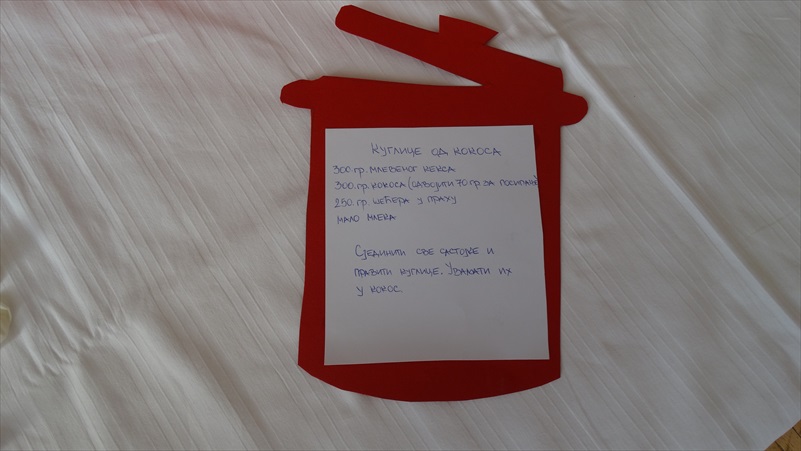 КУГЛИЦЕ ОД КОКОСА
300.ГР. МЛЕВЕНОГ КЕКСА
300.ГР. КОКОСА (ОДВОЈИТИ 70 ГР ЗА ПОСИПАЊЕ)
250.ГР. ШЕЋЕРА У ПРАХУ
МАЛО МЛЕКА
СЈЕДИНИТИ СВЕ САСТОЈКЕ И
ПРАВИТИ КУГЛИЦЕ. УВАЉАТИ ИХ
У КОКОС.